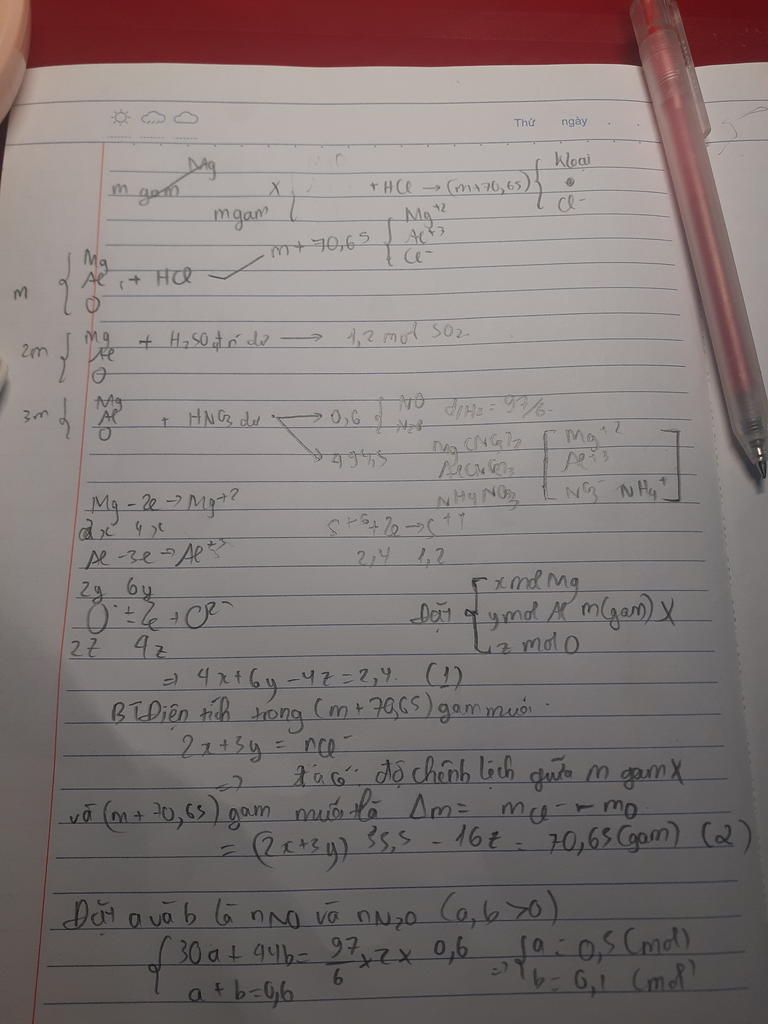 Thứ ngày
Mg
m gam X + HCl → (m+70,65) { kloại
mgam Cl-
m + 70,65 { Mg+2
Al+3
Cl-
m { Mg
Al + HCl
O
2m { Mg + H2SO4 dư → 1,2 mol SO2
Al
O
3m { Mg
Al + HNO3 dư → 0,6 { NO d/H2 = 97/6
O N2O
Mg(NO3)2 [ Mg+2
Al(NO3)3 Al+3
NH4NO3 NO3- NH4+ ]
Mg - 2e → Mg+2
2x 4x S+6 + 2e → S+4
Al - 3e → Al+3 2,4 1,2
2y 6y
O + 2e → O2-
2z 4z
Đặt { x mol Mg
y mol Al m(gam) X
z mol O
⇒ 4x + 6y - 4z = 2,4. (1)
BT Điện tích trong (m + 70,65) gam muối.
2x + 3y = nCl-
⇒ Ta có: độ chênh lệch giữa m gam X
và (m + 70,65) gam muối là Δm = mCl- - mO
= (2x+3y) 35,5 - 16z = 70,65 (gam) (2)
Đặt a và b là nNO và nN2O (a,b > 0)
{ 30a + 44b = 97/6 x 2 x 0,6 ⇒ { a = 0,5 (mol)
a + b = 0,6 b = 0,1 (mol)